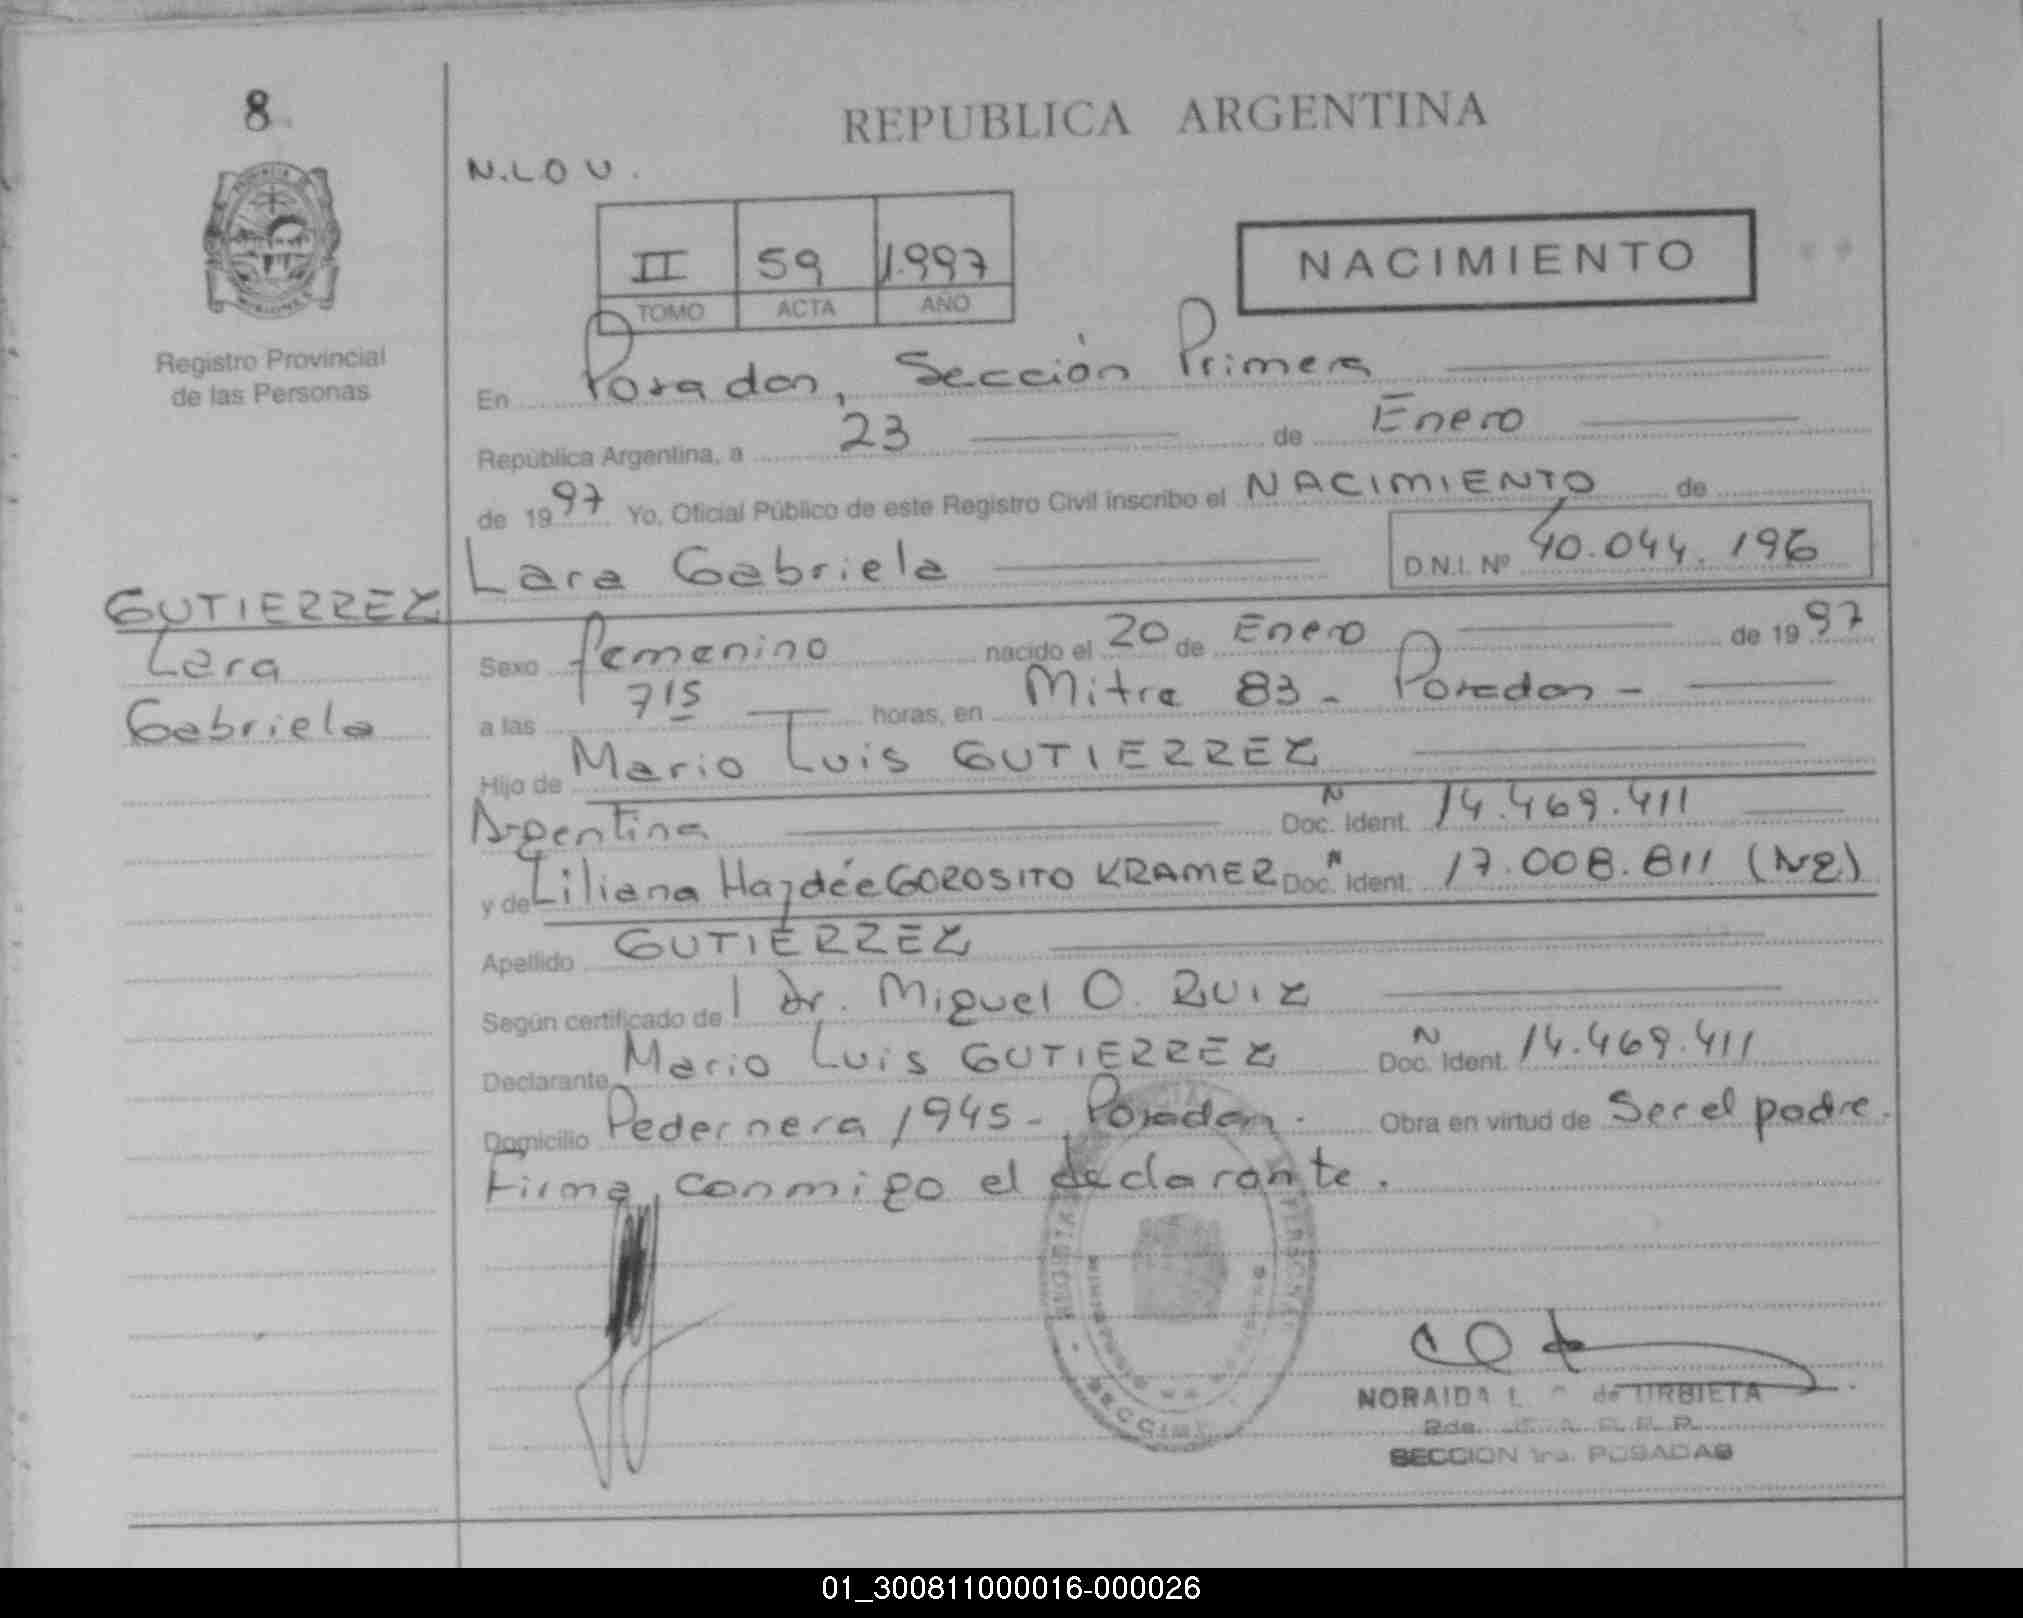 8
REPUBLICA ARGENTINA
N.LOU.
II 59 1.997
TOMO ACTA AÑO
NACIMIENTO
Registro Provincial
de las Personas
En Posadas, Sección Primera
República Argentina, a 23 de Enero
de 1997 Yo, Oficial Público de este Registro Civil inscribo el NACIMIENTO de
Lara Gabriela D.N.I. Nº 40.044.196
GUTIERREZ
Lara
Gabriela
Sexo femenino nacido el 20 de Enero de 1997
a las 7 15 horas, en Mitre 83 - Posadas -
Hijo de Mario Luis GUTIERREZ
Argentina Doc. N Ident. 14.469.411
y de Liliana Haydée GOROSITO KRAMER Doc. N Ident. 17.008.811 (NR)
Apellido GUTIERREZ
Según certificado de l Dr. Miguel O. RUIZ
Declarante Mario Luis GUTIERREZ Doc. N Ident. 14.469.411
Domicilio Pedernera 1945 - Posadas. Obra en virtud de Ser el padre.
Firma conmigo el declarante.
NORAIDA L. de URBIETA
SECCION 1ra. POSADAS
01_300811000016-000026